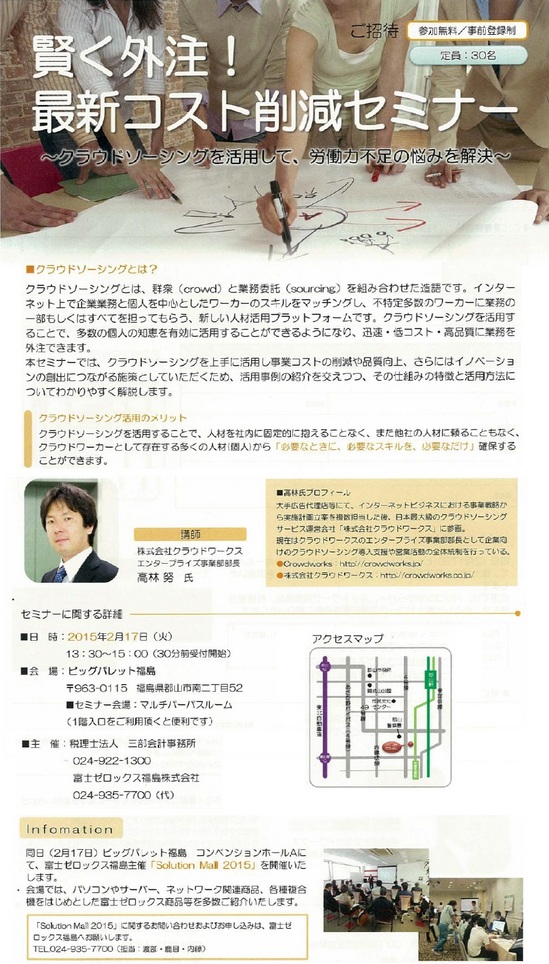 ご招待
参加無料／事前登録制
定員：30名
賢く外注！
最新コスト削減セミナー
～クラウドソーシングを活用して、労働力不足の悩みを解決～
■クラウドソーシングとは？
クラウドソーシングとは、群衆（crowd）と業務委託（sourcing）を組み合わせた造語です。インター
ネット上で企業業務と個人を中心としたワーカーのスキルをマッチングし、不特定多数のワーカーに業務の
一部もしくはすべてを担ってもらう、新しい人材活用プラットフォームです。クラウドソーシングを活用す
ることで、多数の個人の知恵を有効に活用することができるようになり、迅速・低コスト・高品質に業務を
外注できます。
本セミナーでは、クラウドソーシングを上手に活用し事業コストの削減や品質向上、さらにはイノベーショ
ンの創出につながる施策としていただくため、活用事例の紹介を交えつつ、その仕組みの特徴と活用方法に
ついてわかりやすく解説します。
クラウドソーシング活用のメリット
クラウドソーシングを活用することで、人材を社内に固定的に抱えることなく、また他社の人材に頼ることもなく、
クラウドワーカーとして存在する多くの人材(個人)から「必要なときに、必要なスキルを、必要なだけ」確保する
ことができます。
講師
株式会社クラウドワークス
エンタープライズ事業部部長
高林 努 氏
■高林氏プロフィール
大手広告代理店等にて、インターネットビジネスにおける事業戦略か
ら実施計画立案を複数担当した後、日本最大級のクラウドソーシング
サービス運営会社「株式会社クラウドワークス」に参画。
現在はクラウドワークスのエンタープライズ事業部部長として企業向
けのクラウドソーシング導入支援や営業活動の全体統制を行っている。
●Crowdworks：http://crowdworks.jp/
●株式会社クラウドワークス：http://crowdworks.co.jp/
セミナーに関する詳細
■日　時：2015年2月17日（火）
13：30～15：00（30分前受付開始）
■会　場：ビッグパレット福島
〒963-0115　福島県郡山市南二丁目52
■セミナー会場：マルチパーパスルーム
（1階入口をご利用頂くと便利です）
■主　催：税理士法人　三部会計事務所
024-922-1300
富士ゼロックス福島株式会社
024-935-7700（代）
アクセスマップ
東北自動車道
Infomation
同日（2月17日）ビッグパレット福島　コンベンションホールAに
て、富士ゼロックス福島主催「Solution Mall 2015」を開催いた
します。
会場では、パソコンやサーバー、ネットワーク関連商品、各種複合
機をはじめとした富士ゼロックス商品等を多数ご紹介いたします。
「Solution Mall 2015」に関するお問い合わせおよびお申し込みは、富士ゼ
ロックス福島へお願いします。
TEL024-935-7700（担当：渡部・鹿目・内藤）